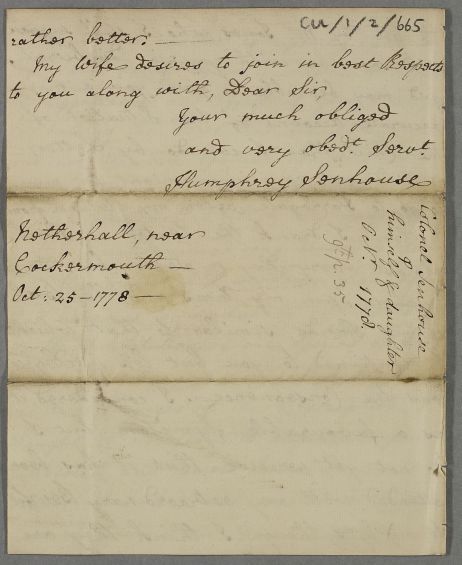 CU/1/2/665
rather better. —
My Wife desires to join in best Respects
to you along with, Dear Sir,
Your much obliged
and very obedt. Servt.
Humphrey Senhouse
Netherhall, near
Cockermouth —
Oct: 25 - 1778 —
Colonel Senhouse
himself & daughter
Octr. 1778.
35